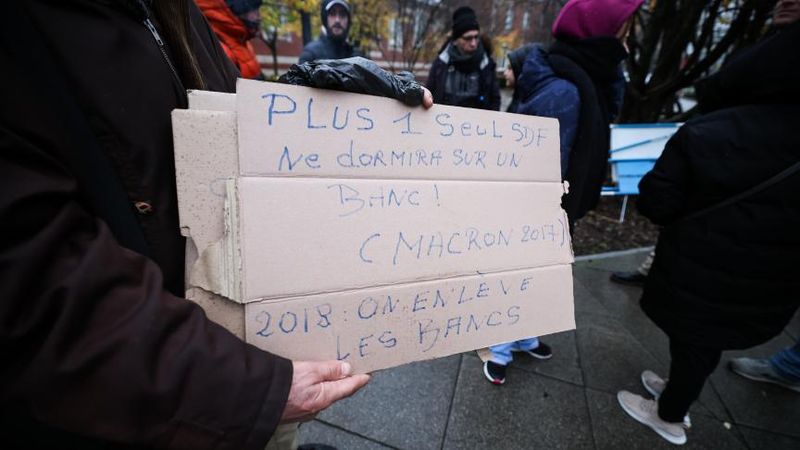 PLUS 1 SEUL SDF
NE DORMIRA SUR UN
BANC !
(MACRON 2017)
2018 : ON ENLÈVE
LES BANCS